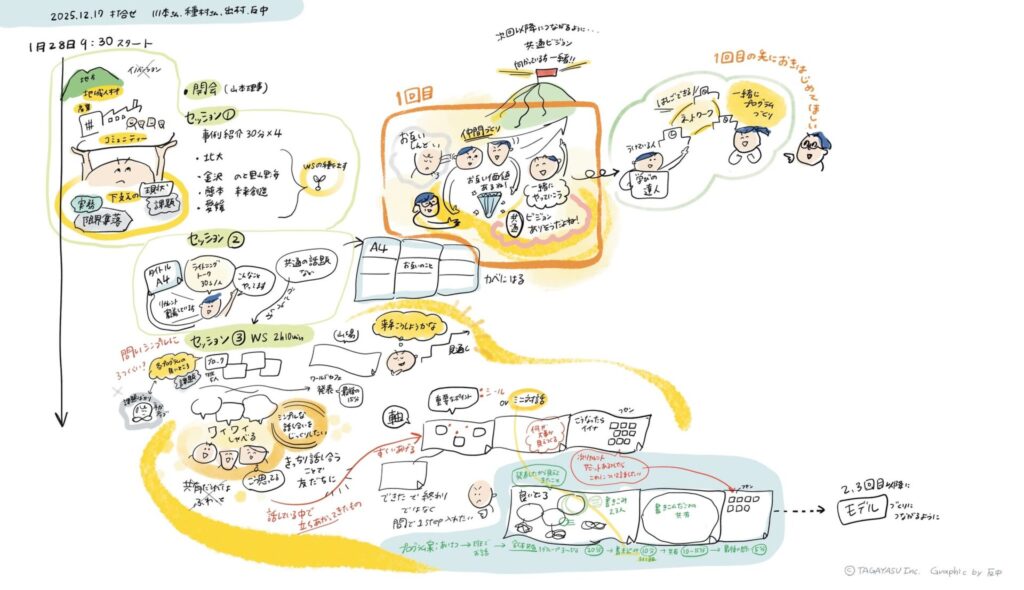 2025.12.17 打合せ 川本さん、種村さん、出村、反中
1月28日 9:30 スタート
地方
地域人材
産業
イノベーション
コミュニティー
下支えの
現状・
課題
実務
限界集落
・開会(山本理事)
セッション①
事例紹介 30分×4
・北大
・金沢
・熊本 未来創造
・愛媛
WSの種をまず
次回以降につながるように・・・
共通ビジョン
向かっている方一緒!!
1回目
お互い
しんどい
仲間づくり
お互い価値
あるね!
一緒に
やっていこう
共通
ビジョン
ありそうだよね!
ネットワーク
一緒に
プログラム
づくり
学びの
達人
1回目の先におきはじめてほしい
セッション②
タイトル
A4
ライトニング
トーク
30s/人
こんなこと
やってます
共通の話題
ない
A4
お互いのこと
カベにはる
セッション③ WS 2h10min
問いシンプルに
3つくらい?
各プログラムの
良いところ
課題
ブロック
5人
ワールドカフェ
発表
最後の
15分
未来こうしようかな
見通し
ワイワイ
しゃべる
シンプルな
話し合いを
じっくりしたい
きっちり話し合う
ことで
友だちに
共有だけでは
ふわっと
話している中で
立ちあがってきたもの
すいあげる
軸
重要なポイント
・シール
or
ミニ対話
何が
大事か
見えてくる
こうなったら
イイナ
フセン
できたで終わり
ではなく
間で1step入れたい
良いところ
書きこみ
2,3人
書きこんだことの
共有
フセン
プログラム案:あいさつ
20分
10分
10-15分
5分
2,3回目以降に
モデル
づくりに
つながるように
©TAGAYASU Inc. Graphic by 反中